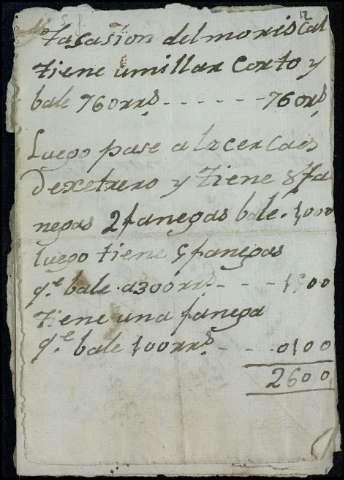 12
tasasion del moriscal
tiene umillar corto y
bale 760 rrs - - - - - - 760 rs
Luego pase a la cerca es
de xetrero y tiene 8 fa
negas 2 fanegas bale . 1000
luego tiene 5 fanegas
qe bale a300 rrs - - - 1500
tiene una fanega
qe bale 100 rrs - - - 0100
2600